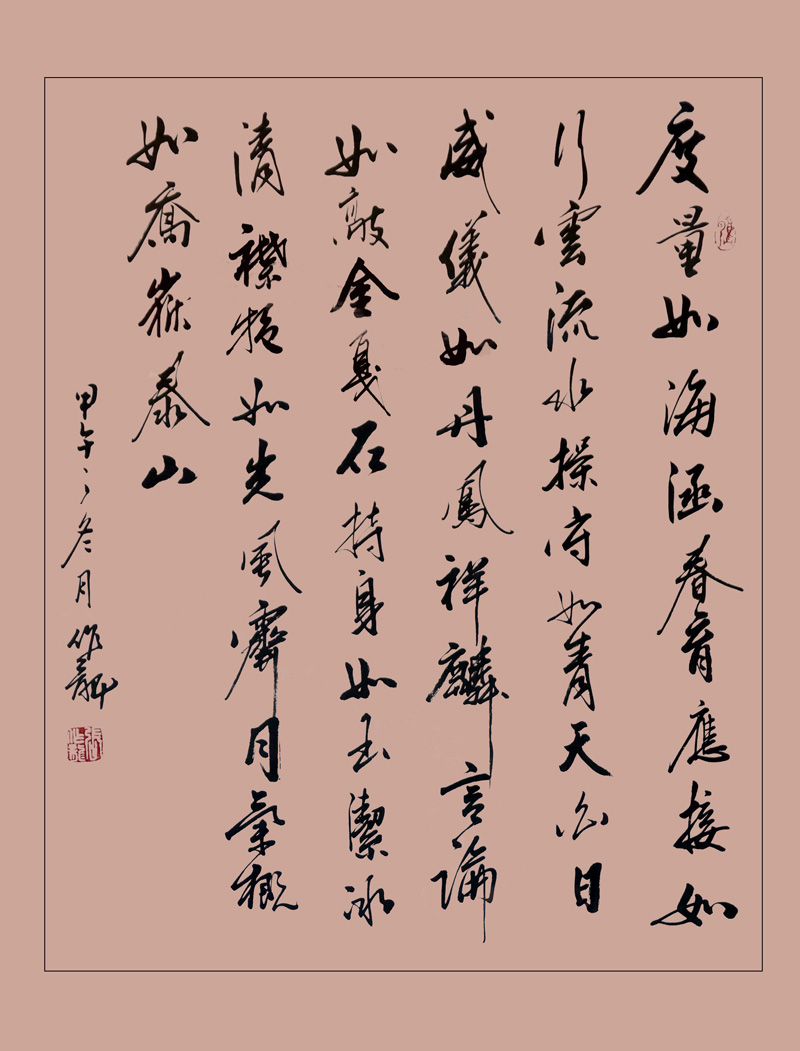 度量如海涵春育應接如
行雲流水操守如青天白日
威儀如丹鳳祥麟言論
如敲金戛石持身如玉潔冰
清襟抱如光風霽月氣概
如喬嶽泰山
甲午之冬月作龍